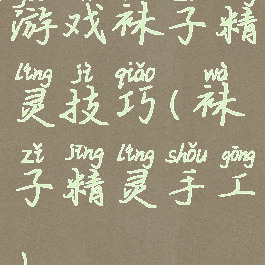 游戏袜子精
líng jì qiǎo wà
灵技巧(袜
zǐ jīng líng shǒu gōng
子精灵手工
)